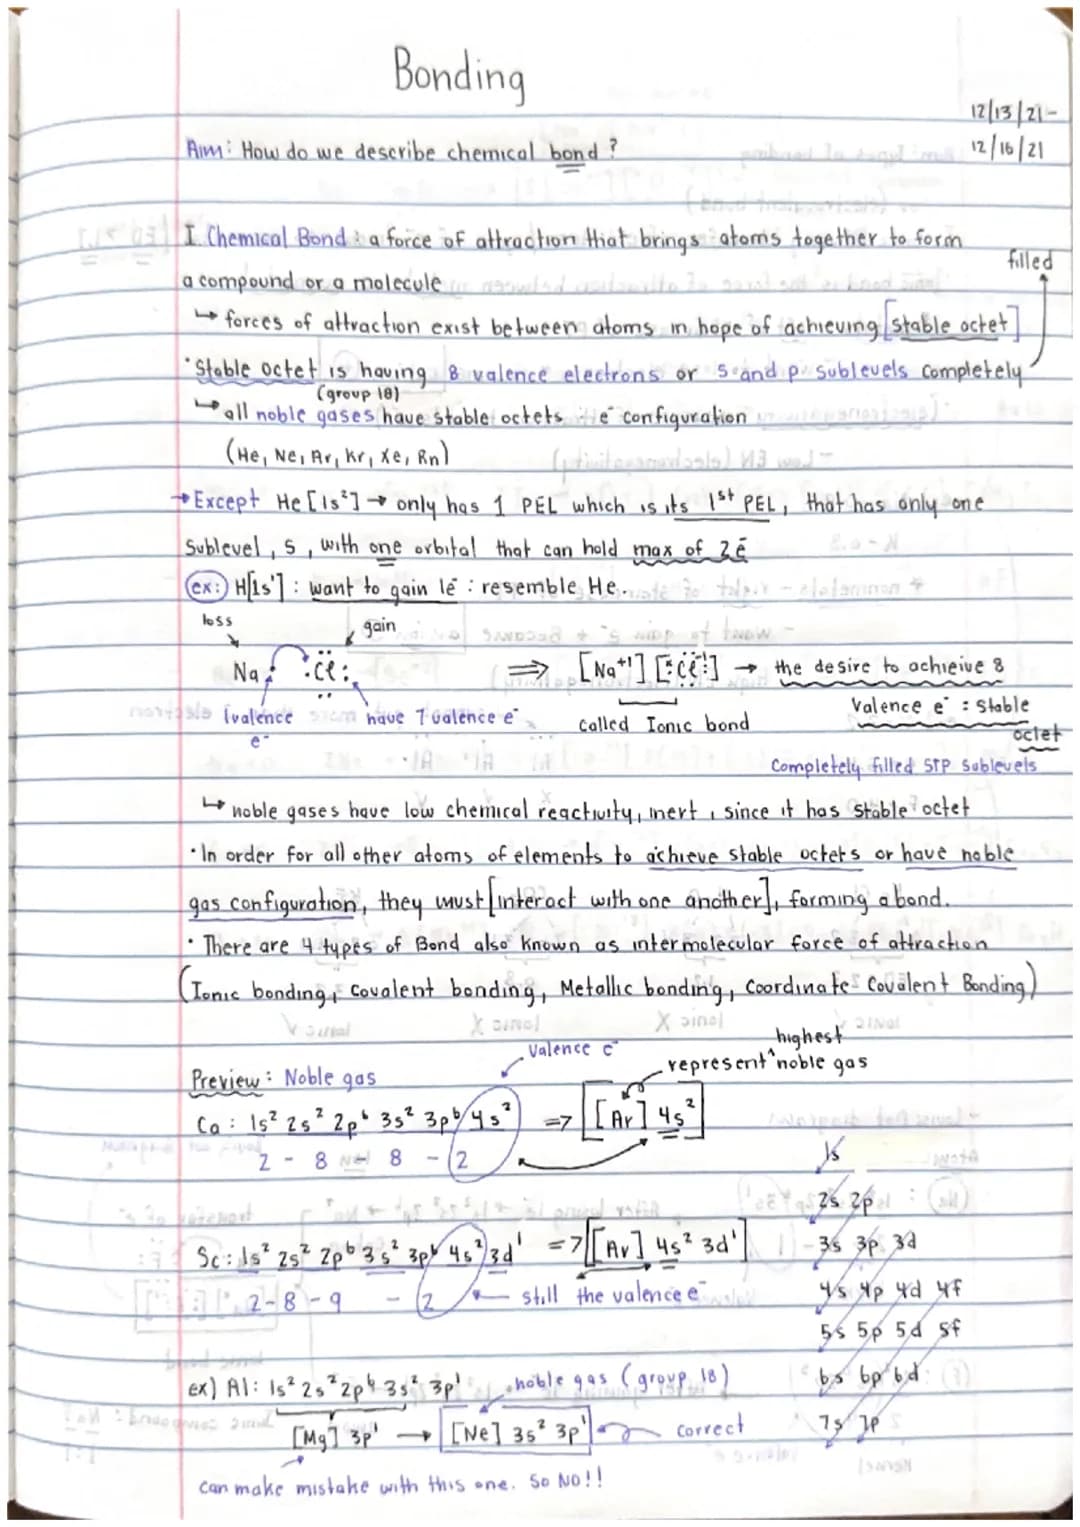 Bonding
12/13/21-
12/16/21
Aim: How do we describe chemical bond?
I Chemical Bond: a force of attraction that brings atoms together to form
a compound or a molecule
filled
↳ forces of attraction exist between atoms in hope of achieving [stable octet]
· Stable octet is having 8 valence electrons or s and p sublevels completely
(group 18)
↳ all noble gases have stable octets e⁻ configuration
(He, Ne, Ar, Kr, Xe, Rn)
→ Except He [1s²] → only has 1 PEL which is its 1st PEL, that has only one
sublevel, s, with one orbital that can hold max of 2e⁻
ex: H[1s¹] : want to gain 1e⁻ : resemble He.
loss
gain
Na · ·Cl: ⇒ [Na⁺¹] [:Cl:]⁻¹ → the desire to achieive 8
1 valence have 7 valence e⁻ called Ionic bond valence e⁻ : stable
e⁻ octet
Completely filled S+P sublevels
↳ noble gases have low chemical reactivity, inert, since it has stable octet
· In order for all other atoms of elements to achieve stable octets or have noble
gas configuration, they must [interact with one another], forming a bond.
· There are 4 types of Bond also known as intermolecular force of attraction
(Ionic bonding, Covalent bonding, Metallic bonding, Coordinate Covalent Bonding)
valence e⁻
highest
represent ^ noble gas
Preview: Noble gas
Ca: 1s² 2s² 2p⁶ 3s² 3p⁶ 4s² => [[Ar] 4s²]
2 - 8 - 8 - 2
1s
2s 2p
Sc: 1s² 2s² 2p⁶ 3s² 3p⁶ 4s² 3d¹ => [[Ar] 4s² 3d¹]
3s 3p 3d
2-8-9 - 2 still the valence e⁻
4s 4p 4d 4f
5s 5p 5d 5f
ex) Al: 1s² 2s² 2p⁶ 3s² 3p¹ noble gas (group 18)
6s 6p 6d
[Mg] 3p¹ → [Ne] 3s² 3p¹ correct
7s 7p
can make mistake with this one. So NO!!